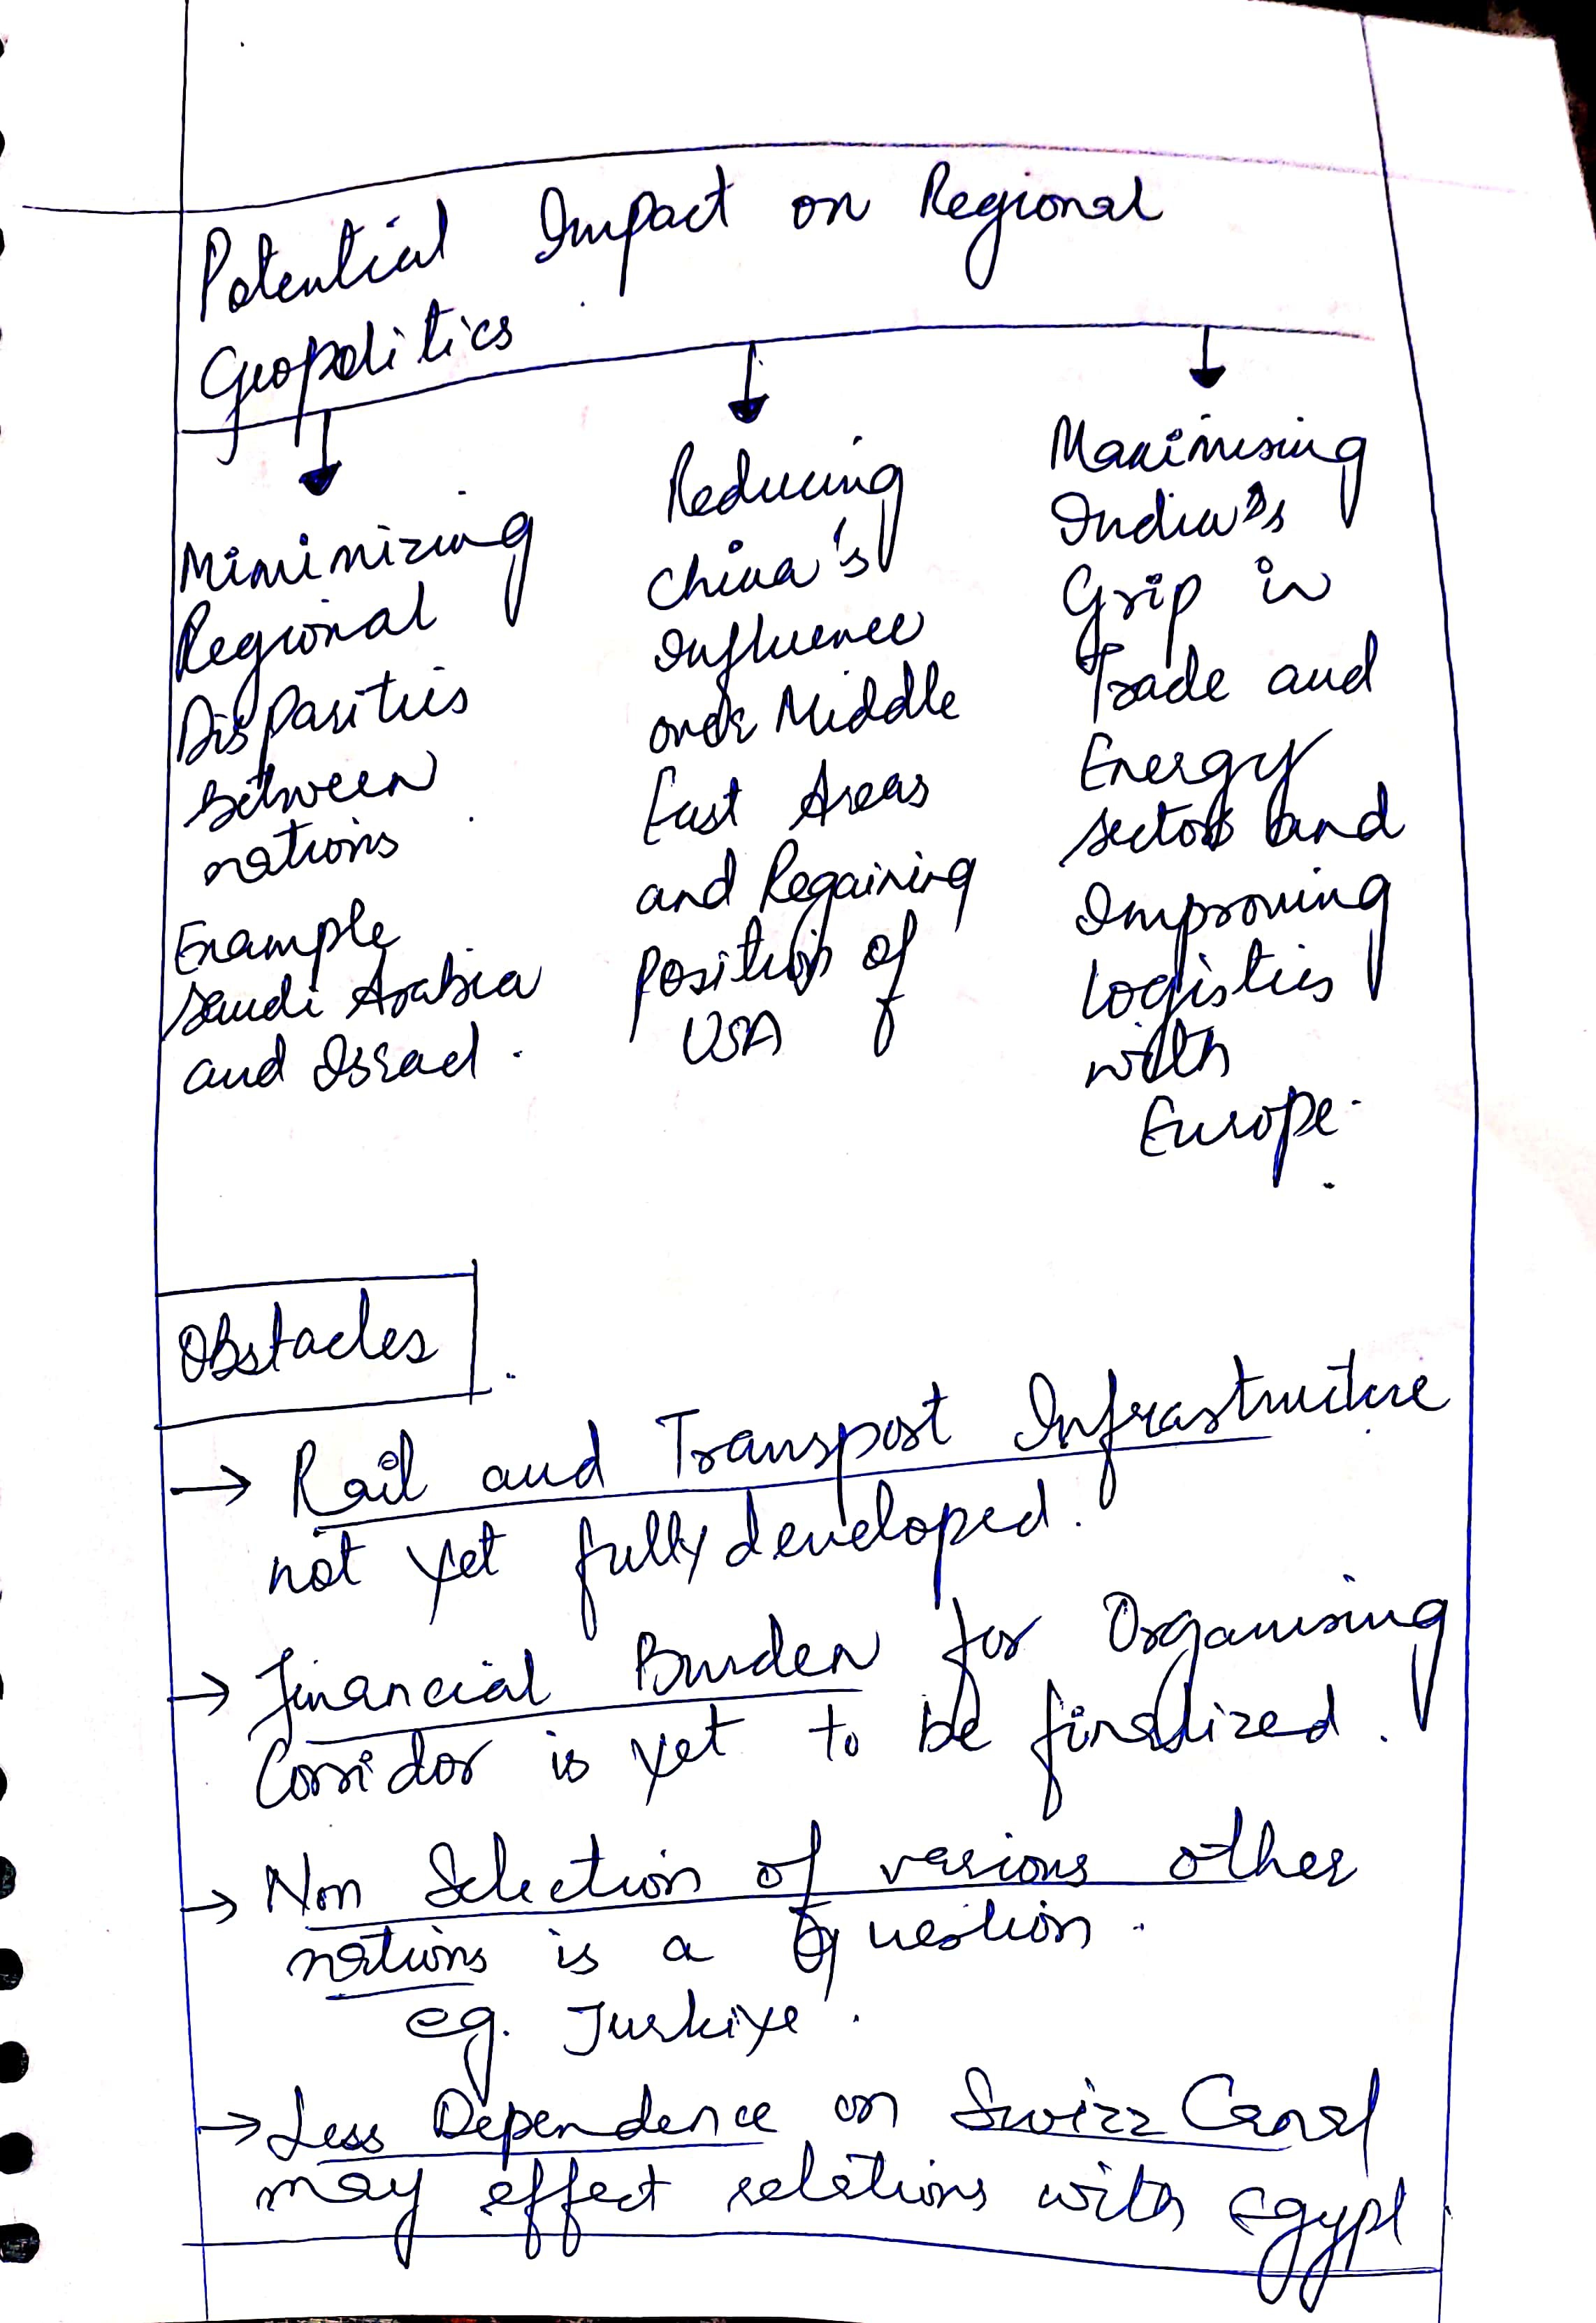 Potential Impact on Regional
Geopolitics
Minimizing
Regional
Disparities
between
nations
Example
Saudi Arabia
and Israel.
Reducing
China's
Influence
over Middle
East Areas
and Regaining
Position of
USA
Maximising
India's
Grip in
Trade and
Energy
sectors and
Improving
logistics
with
Europe.
Obstacles
→ Rail and Transport Infrastructure
not yet fully developed.
→ Financial Burden for Organising
Corridor is yet to be finalized.
→ Non Selection of various other
nations is a Question.
eg. Turkiye.
→ Less Dependence on Swizz Canal
may effect relations with egypt.